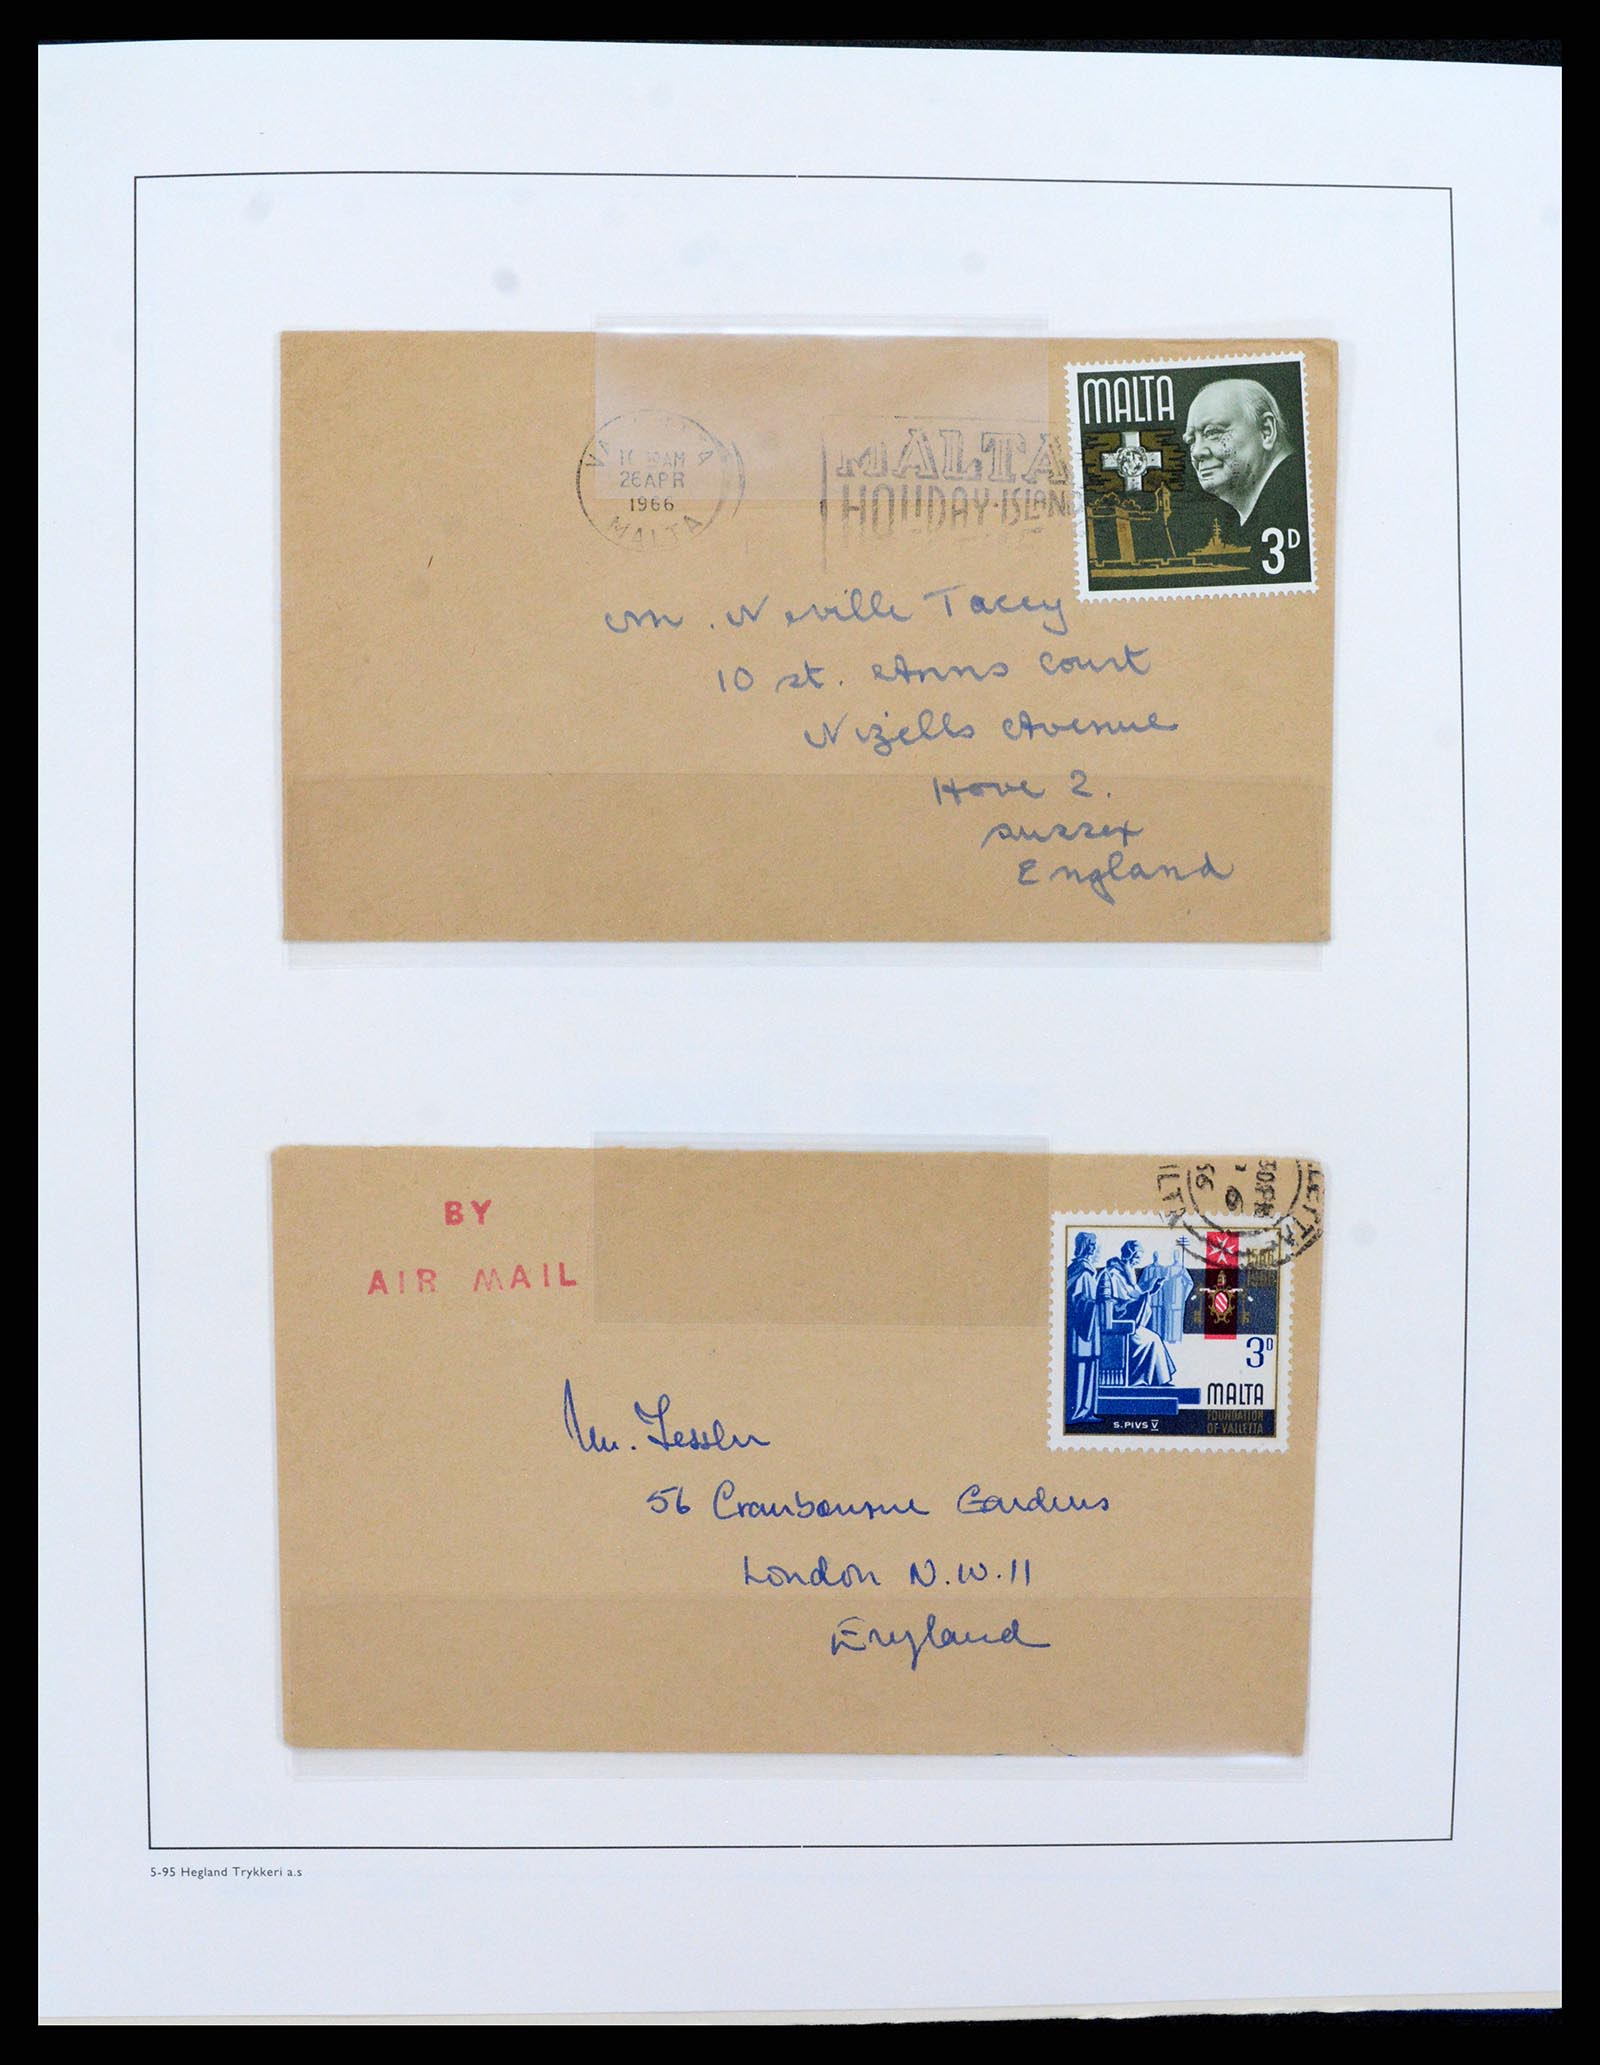 MALTA
3D
VALLETTA
AM
26 APR
1966
MALTA
MALTA
HOLIDAY·ISLAND
Mr. Neville Tacey
10 St. Anns Court
Nizells Avenue
Hove 2.
Sussex
England
BY
AIR MAIL
1566
1966
3D
MALTA
FOUNDATION
OF VALLETTA
S. PIVS V
Mr. Fessler
56 Cranbourne Gardens
London N.W.11
England
5-95 Hegland Trykkeri a.s